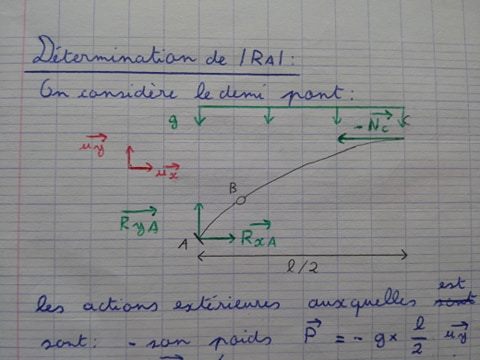 Détermination de |RA| :
On considère le demi pont :
g
- Nc
C
uy
ux
B
RyA
A
RxA
l/2
les actions extérieures auxquelles sont est
sont : - son poids P = - g × l/2 uy